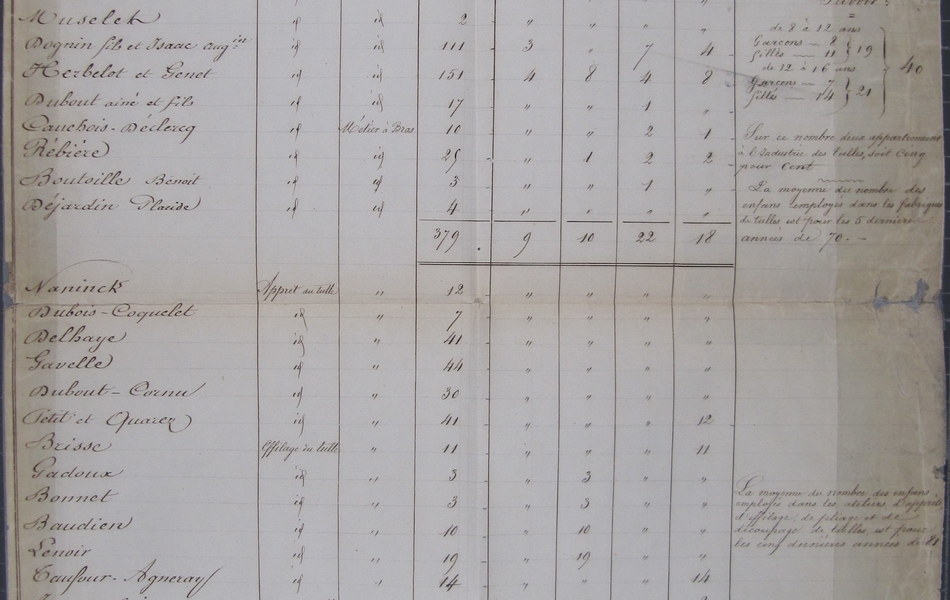 Savoir :
Muselet id id 2 " " " "
Dognin fils et Isaac Aug.in id id 111 3 " 7 4
Herbelot et Genet id id 151 4 8 4 8
Dubout ainé et fils id id 17 " " 1 "
Cauchois-Déclercq id Métier à Bras 10 " " 2 1
Rébière id id 25 " 1 2 2
Boutoille Benoit id id 3 " " 1 "
Déjardin Placide id id 4 " " " "
379 9 10 22 18
de 8 à 12 ans
Garçons — 8
filles — 11 } 19
de 12 à 16 ans } 40
Garçons — 7
filles — 14 } 21
Sur ce nombre deux appartiennent
à l'Industrie des tulles, soit Cinq
pour Cent
La moyenne du nombre des
enfans employés dans les fabriques
de tulles est pour les 5 dernières
années de 70. —
Naninck Appret du tulle " 12 " " " "
Dubois-Coquelet id " 7 " " " "
Delhaye id " 41 " " " "
Gavelle id " 44 " " " "
Dubout-Cornu id " 30 " " " "
Petit et Quarez id " 41 " " " 12
Brisse Effilage du tulle " 11 " " " 11
Gadoux id " 3 " 3 " "
Bonnet id " 3 " 3 " "
Baudien id " 10 " 10 " "
Lenoir id " 19 " 19 " "
Caufour-Agneray id " 14 " " " 14
La moyenne du nombre des enfans
employés dans les ateliers d'apprets
d'effilage, de pliage et de
découpage de tulles est pour
les cinq dernières années de 81